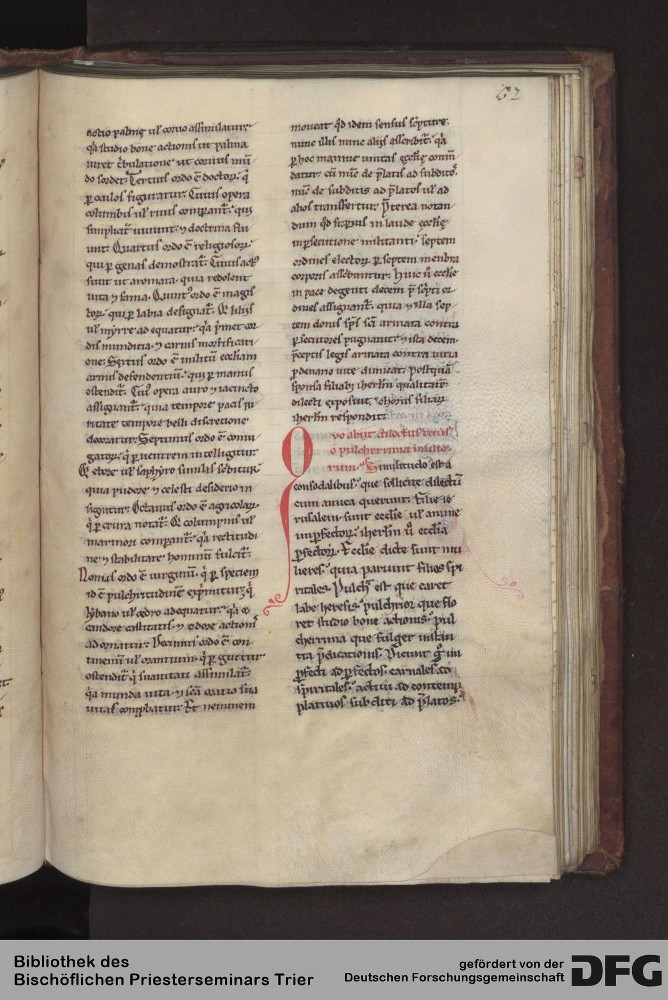 62
actio palme ul' coruo assimilatur.
q'a studio bone actionis ut palma
uiret t'bulatione ut coruus mū
do sordet. Tercius ordo ē doctor. q'
p oculos figuratur. Cuius opera
columbis ul' riuis conparant'. qui
simplicit' uiuunt. ⁊ doctrina flu
unt. Quartus ordo ē religiosor.
qui p genas demostrat'. Cuius act'
sunt ut aromata. quia redolent
uita ⁊ fama. Quint' ordo ē magis
tror. qui p labia designat'. Et liliis
ul' myrre adequatur. q'a p'met cor
dis mundicia. ⁊ carnis mortificati
one. Sextus ordo ē militū eccliam
armis defendentiū. qui p manus
ostendit'. Cui' opera auro ⁊ iacincto
assignant'. quia tempore pacis pu
ritate tempore belli discretione
decoratur. Septimus ordo ē coniu
gator. q' p uentrem intelligitur.
Et ebore ul' saphyro similis scribitur
quia pudore ⁊ celesti desiderio in
signitur. Octauus ordo ē agricolar.
q' p crura notat'. Et columpnis ul'
marmori conparant'. q'a rectitudi
ne ⁊ stabilitate hominū fulcit'.
Nonus ordo ē uirginū. q' p speciem
id ē pulchritudinē exp'mitur. q'
lybano ul' cedro adequatur. q'a
candore castitatis. ⁊ odore action'
adornatur. Decimus ordo ē con
tinentiū ul' orantium. q' p guttur
ostendit' q' suauitati assimilat'.
q'a munda uita ⁊ scā oratio sua
uitas conp'batur. Et neminem
moueat qd idem sensus scripture.
nunc illis nunc aliis asscribit'. q'a
p hoc maxime unitas ecclie com̄
datur. cū nūc de p'latis ad subditos.
nūc de subditis ad p'latos ul' ad
alios transfertur. P'terea notan
dum qd superius in laude ecclie
in psecutione militanti. septem
ordines electorȝ p septem menbra
corporis asscribuntur. Huic u' ecclie
in pace degenti decem p' scripti or
dines assignant'. quia ⁊ illa sep
tem donis sp̄s scī armata contra
psecutores pugnauit. ⁊ ista decem
p'ceptis legis armata contra uicia
p denario uite dimicat. Postquā
sponsa filiabȝ ihrl'm qualitatē
dilecti exposuit. chorus filiarȝ
iherl'm respondit.
Quo abiit dilectus tuus
o pulcherrima mulie
rum. Similitudo est a
consodalibus. que sollicite dilectū
cum amica querunt. Filie ie
rusalem sunt ecclie ul' anime
inpfectorȝ. iherl'm u' ecclia
pfectorȝ. Ecclie dicte sunt mu
lieres. quia pariunt filios spi
ritales. Pulchra est que caret
labe heresis. pulchrior que flo
ret studio bone actionis. pul
cherrima que fulget instan
tia p'dicationis. Dicunt ergo in
pfecti ad pfectos. carnales ad
spiritales. actiui ad contemp
platiuos. subditi ad p'latos.
Bibliothek des
Bischöflichen Priesterseminars Trier
gefördert von der
Deutschen Forschungsgemeinschaft
DFG